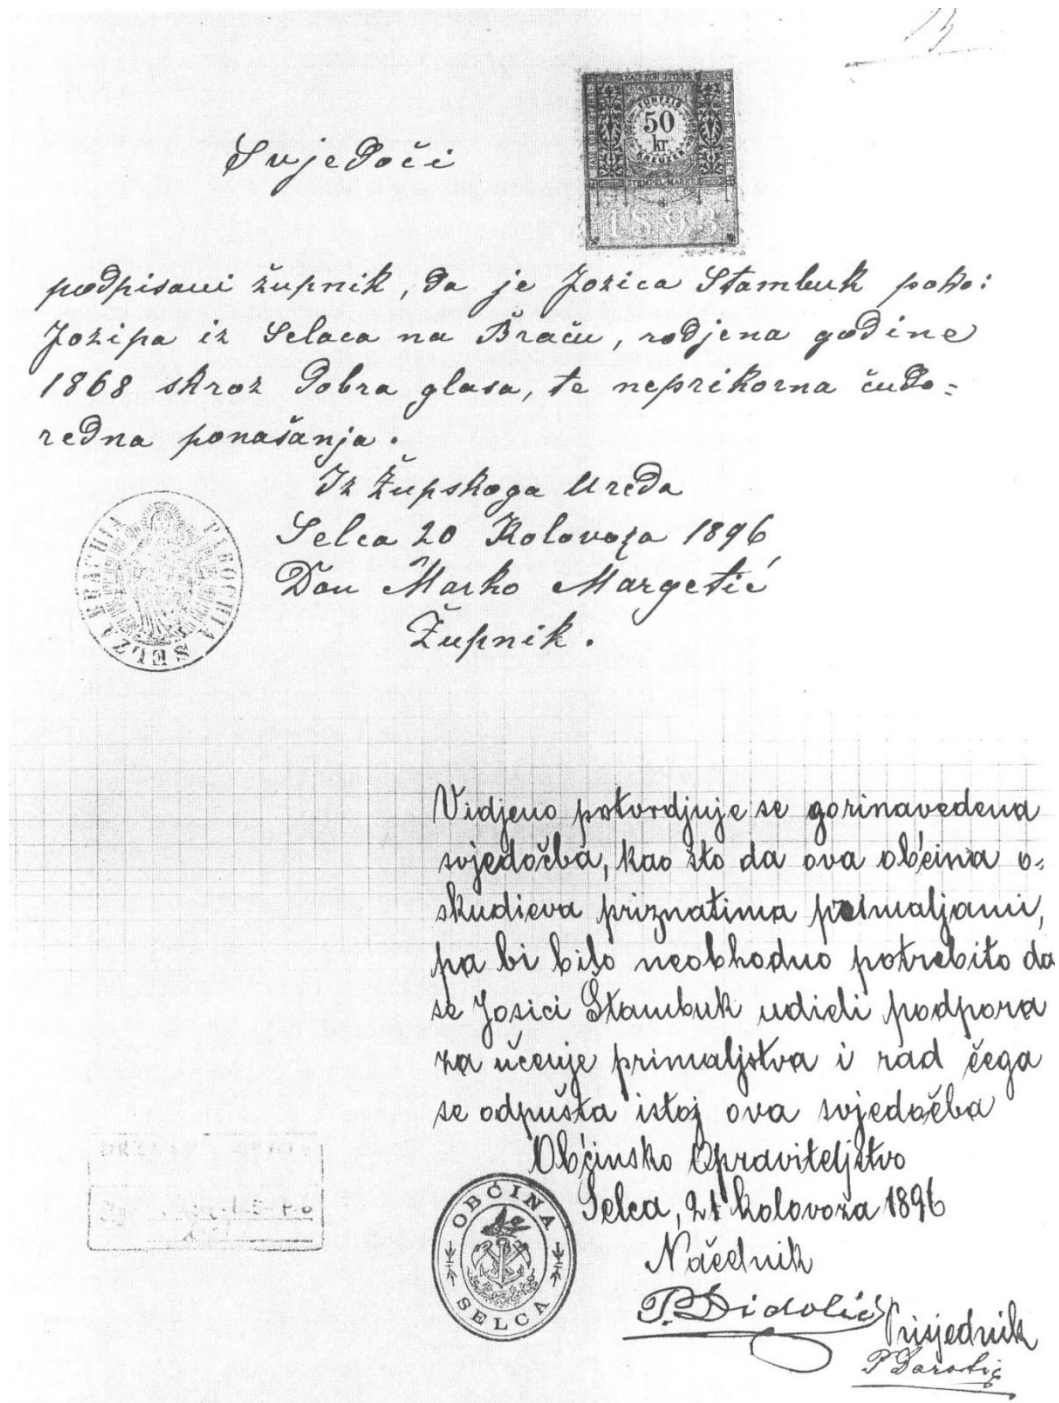 FÜNFZIG
50
kr.
KREUZER
STEMPEL-MARKE
1893
Svjedoči
podpisani župnik, da je Jozica Štambuk poko:
Jozipa iz Selaca na Braču, rodjena godine
1868 skroz dobra glasa, te neprikorna ćudo-
redna ponašanja.
Iz Župskoga Ureda
Selca 20 Kolovoza 1896
Don Marko Margetić
Župnik.
PAROCHIA SELZA BRACHIA
Vidjeno potvrdjuje se gorinavedena
svjedočba, kao što da ova obćina o-
skudieva priznatima primaljami,
pa bi bilo neobhodno potrebito da
se Josici Štambuk udieli podpora
za učenje primaljstva i rad čega
se odpušta istoj ova svjedočba
Obćinsko Upraviteljstvo
Selca, 21 kolovoza 1896
OBĆINA
SELCA
Načelnik
P. Didolić
Prisjednik